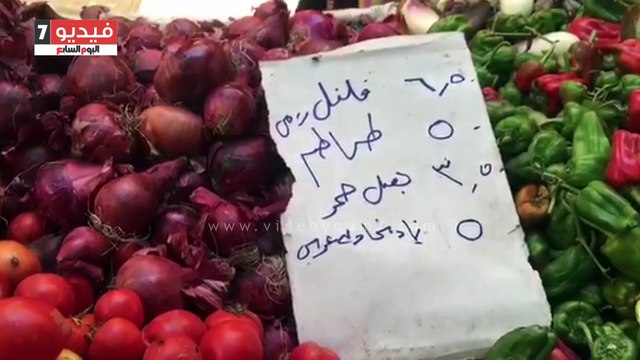 فيديو 7
اليوم السابع
فلفل رومى ٦,٥٠
طماطم ٥
بصل احمر ٣,٥٠
٥
www.videoyoum7.com